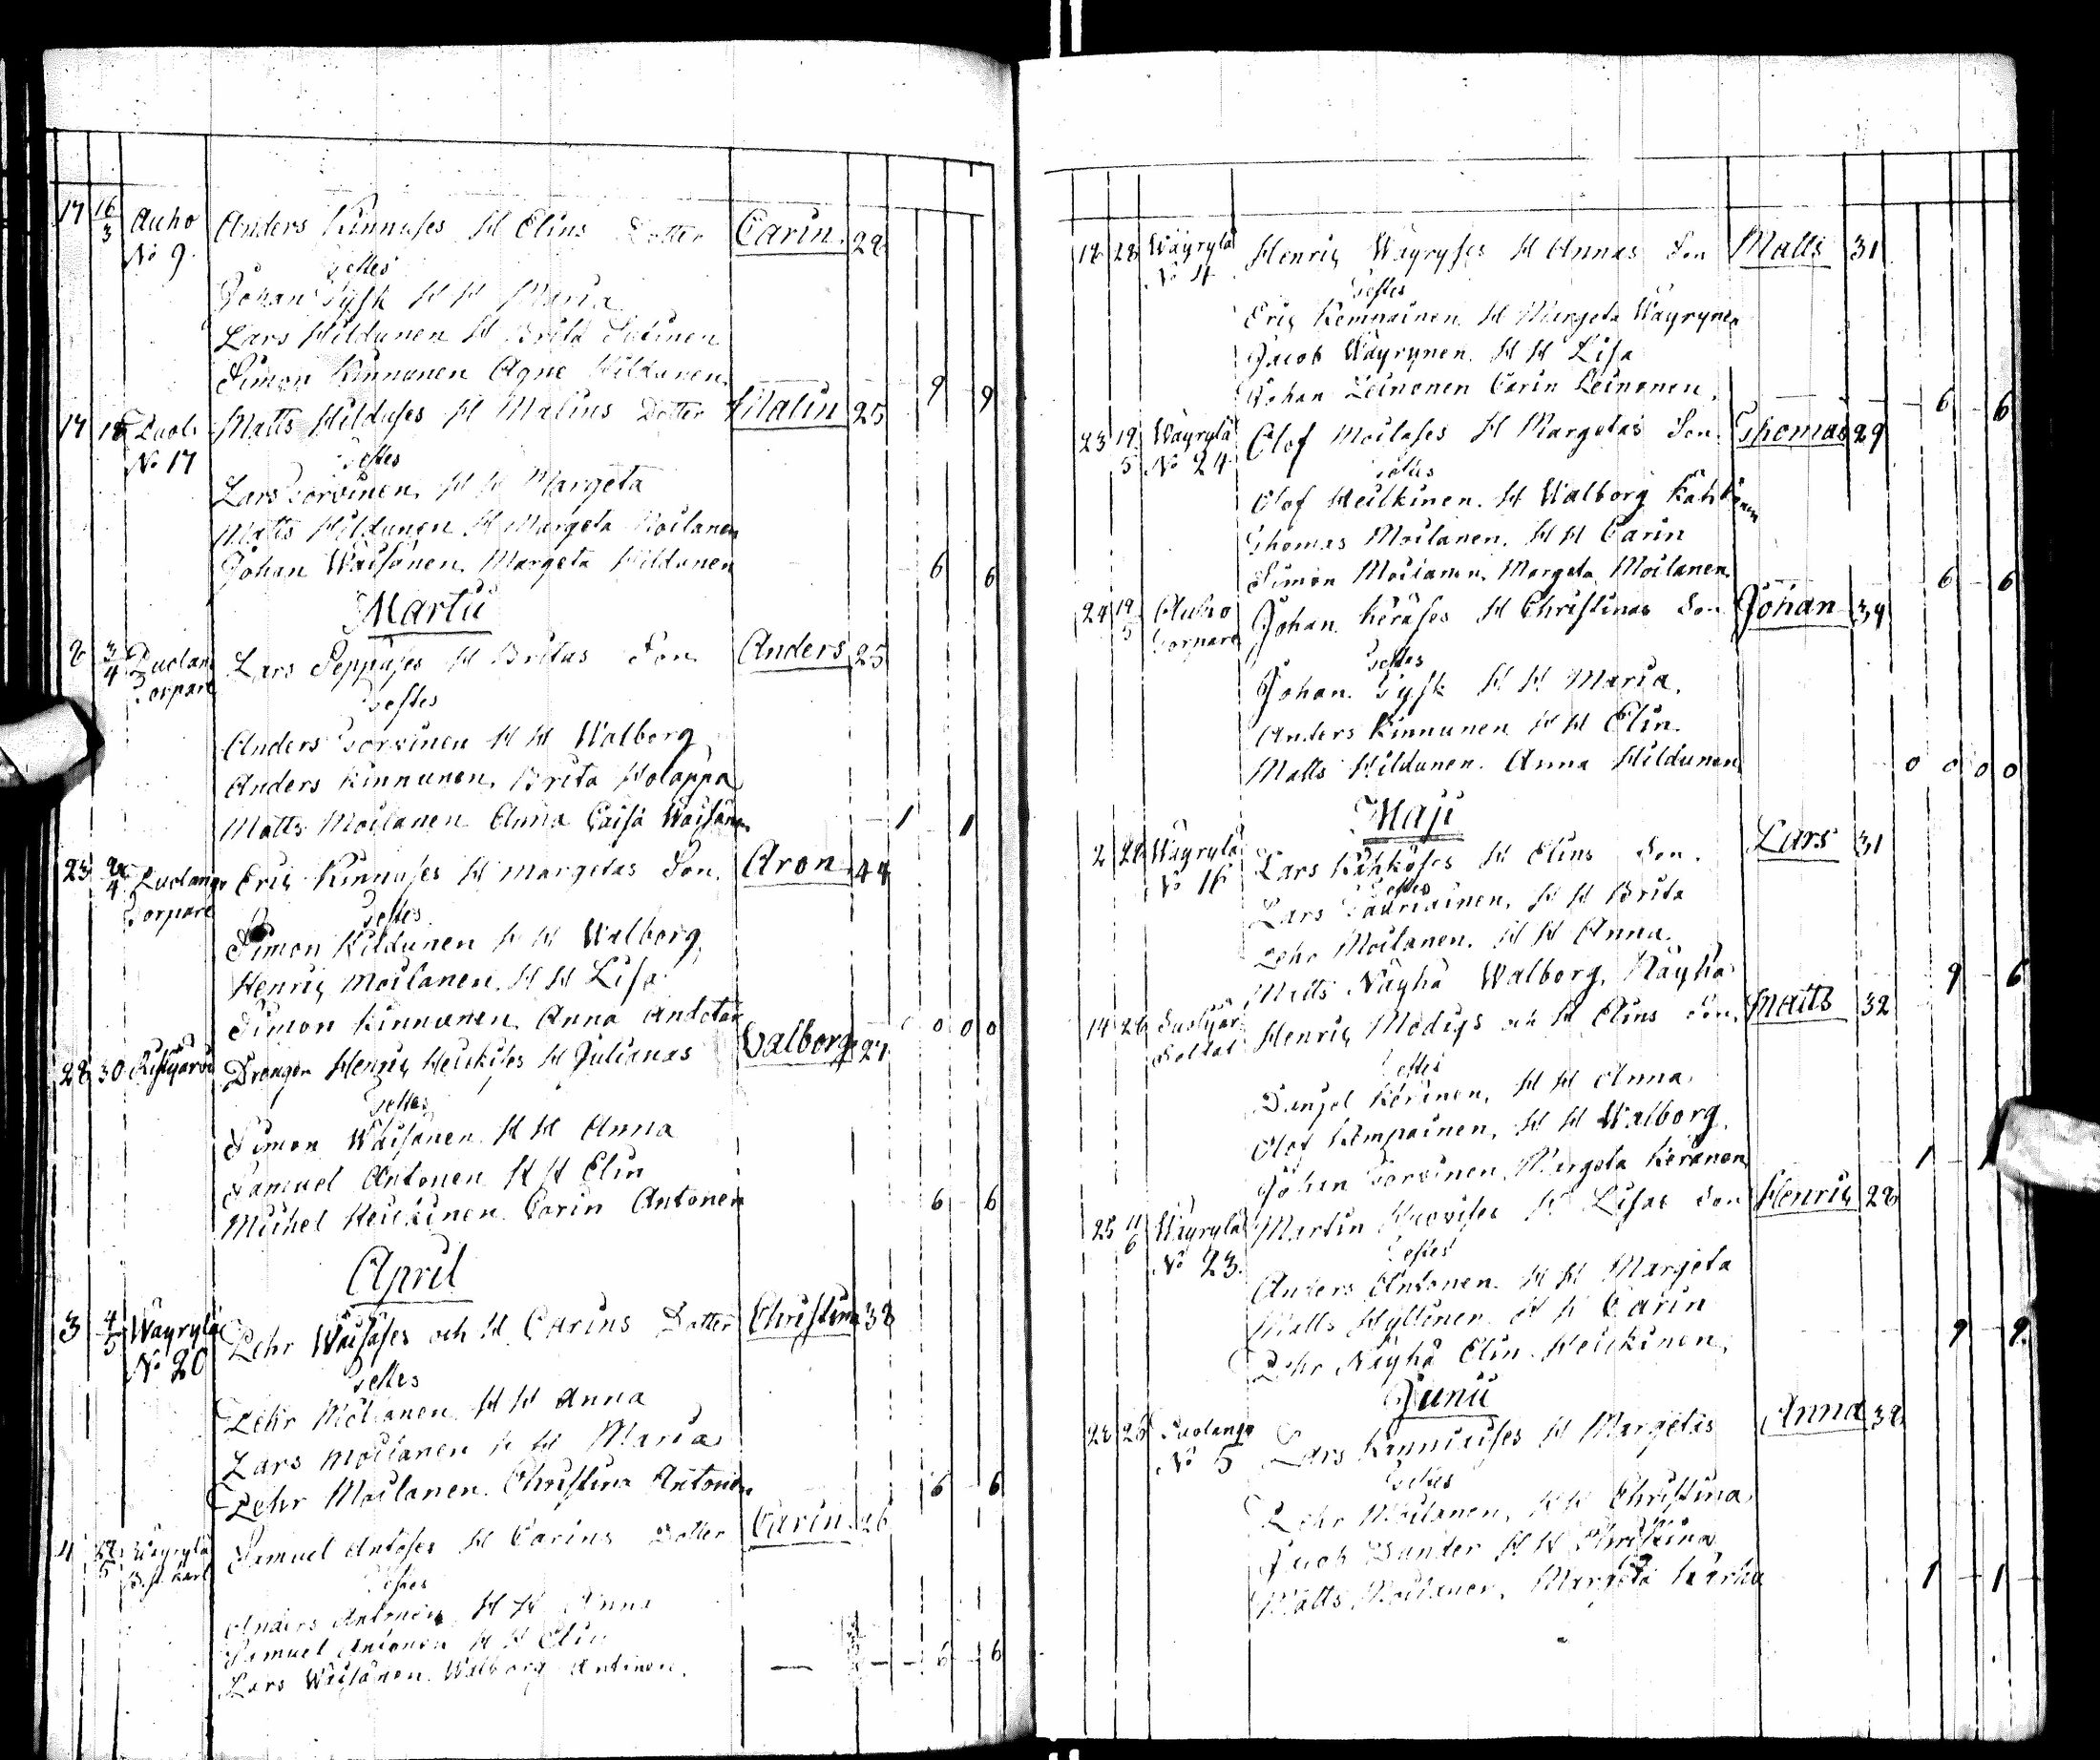 17 16/3 Auho Anders Kinnuses H Elins Dotter Carin 28
No 9. Testes
Johan Tysk H H Maria
Lars Hildunen H Brita
Simon Kinnunen Agne Hildunen 9 9
17 18 Matts Hilduses H Malins Dotter Malin 25
No 17 Testes
Lars Torvinen H H Margeta
Matts Hildunen H Margeta Moilanen
Johan Wäisänen Margeta Hildunen 6 6
Martii
8 3/4 Luolan Lars Seppäses H Britas Son Anders 25
Torpare Testes
Anders Torvinen H H Walborg
Anders Kinnunen, Brita Holappa
Matts Moilanen Anna Caisa Wäisänen 1 1
23 /4 Luolango Eric Kinnuses H Margetas Son. Aron 44
Torpare Testes
Simon Hildunen H H Walborg
Henric Moilanen H H Lisa
Simon Kinnunen, Anna 0 0 0
28 30 Ristijärvi Drengen Henric Heikises H Julianas Valborg 27
Testes
Simon Wäisänen H H Anna
Samuel Antonen H H Elin
Michel Heickinen Carin Antonen 6 6
April
3 4/5 Wäyrylä Lehr Wäisäses och H Carins Dotter Christina 38
No 20 Testes
Lehr Moilanen H H Anna
Lars Moilanen H H Maria
Lehr Moilanen Christina Antonen 6 6
4 /5 Wäyrylä Samuel Antoses H Carins Dotter Carin 26
Testes
Anders Antonen H H Anna
Samuel Antonen H H Elin
Lars Wäisänen Walborg Antonen. 6 6
18 28 Wäyrylä Henric Wäyryses H Annas Son Matts 31
No 4 Testes
Eric Kemnainen H Margeta Wäyrynen
Jacob Wäyrynen H H Lisa
Johan Leinonen Carin Leinonen. 6 6
23 19/5 Wäyrylä Olof Moilases H Margetas Son Thomas 29
No 24 Testes
Olof Heikinen. H Walborg Kähkönen
Thomas Moilanen. H H Carin
Simon Moilanen, Margeta Moilanen 6 6
24 19/5 Auho Johan Keräses H Christinas Son Johan 34
Torpare Testes
Johan Tysk H H Maria.
Anders Kinnunen H H Elin.
Matts Hildunen. Anna Hildunen 0 0 0 0
Maji
2 22 Wäyrylä Lars Kähköses H Elins Son. Lars 31
No 16 Testes
Lars Tauriainen, H H Brita
Lehr Moilanen. H H Anna.
Matts Näyhä Walborg Näyhä 9 6
14 26 Henric Modigs och H Elins Son Matts 32
Soldat Testes
Daniel Keränen, H H Anna.
Olof Kempainen, H H Walborg.
Johan Torvinen, Margeta Keränen 1 1
25 11/6 Wäyrylä Martin H Lisas Son Henric 28
No 23. Testes
Anders Antonen. H H Margeta
Matts Hyttinen H H Carin
Lehr Näyhä Elin Heickinen. 9 9
Junii
Luolango Lars H Margetas Anna 32
No 5 Testes
Lehr Moilanen, H H Christina
Jacob Sander H H Christina
Matts Moilanen, Margeta Karhu 1 1